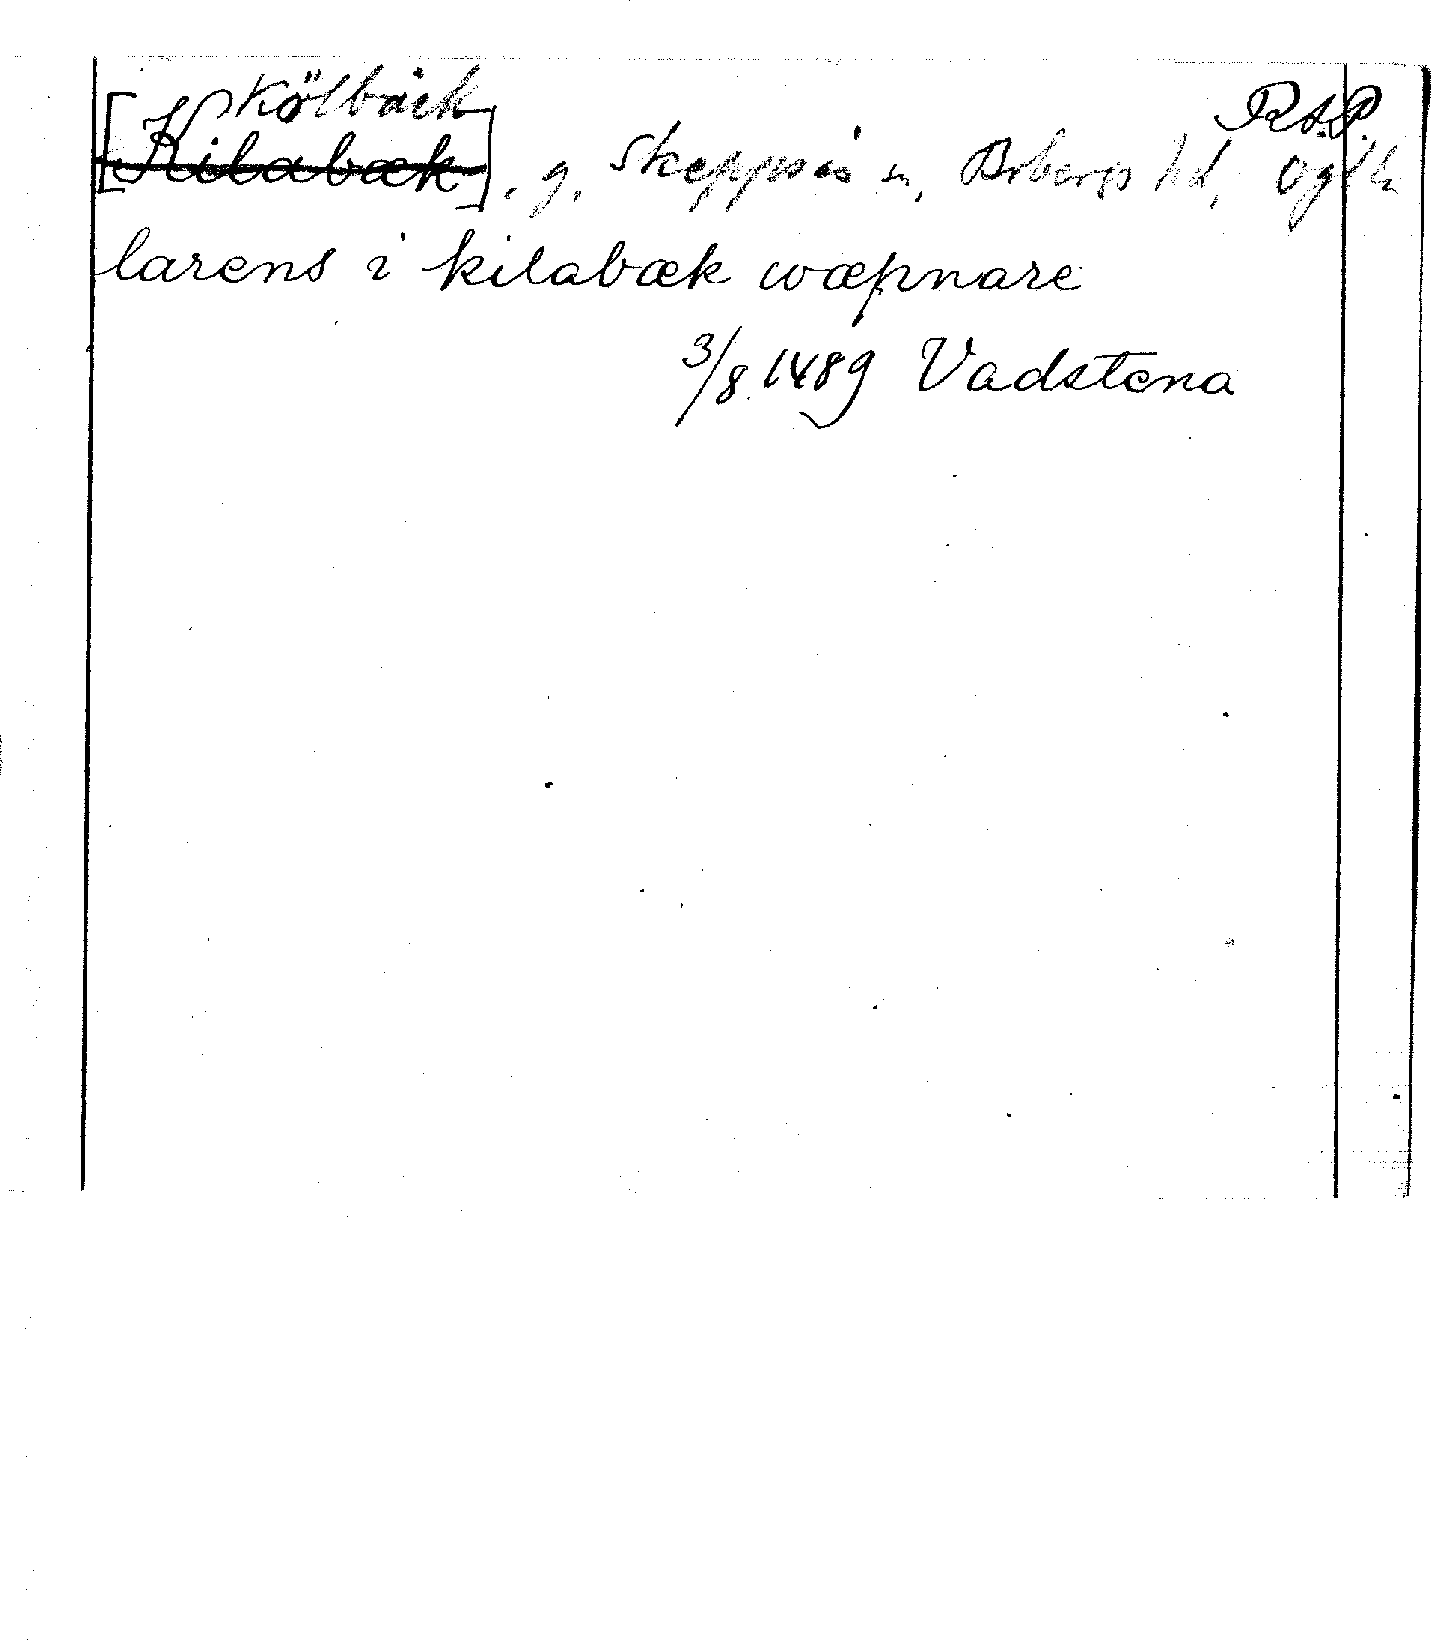 Kölbäck R.A.P.
[Kilabæk], g, Skeppsås sn, Bobergs hd, Ögtl
larens i kilabæk wæpnare
3/8 1489 Vadstena